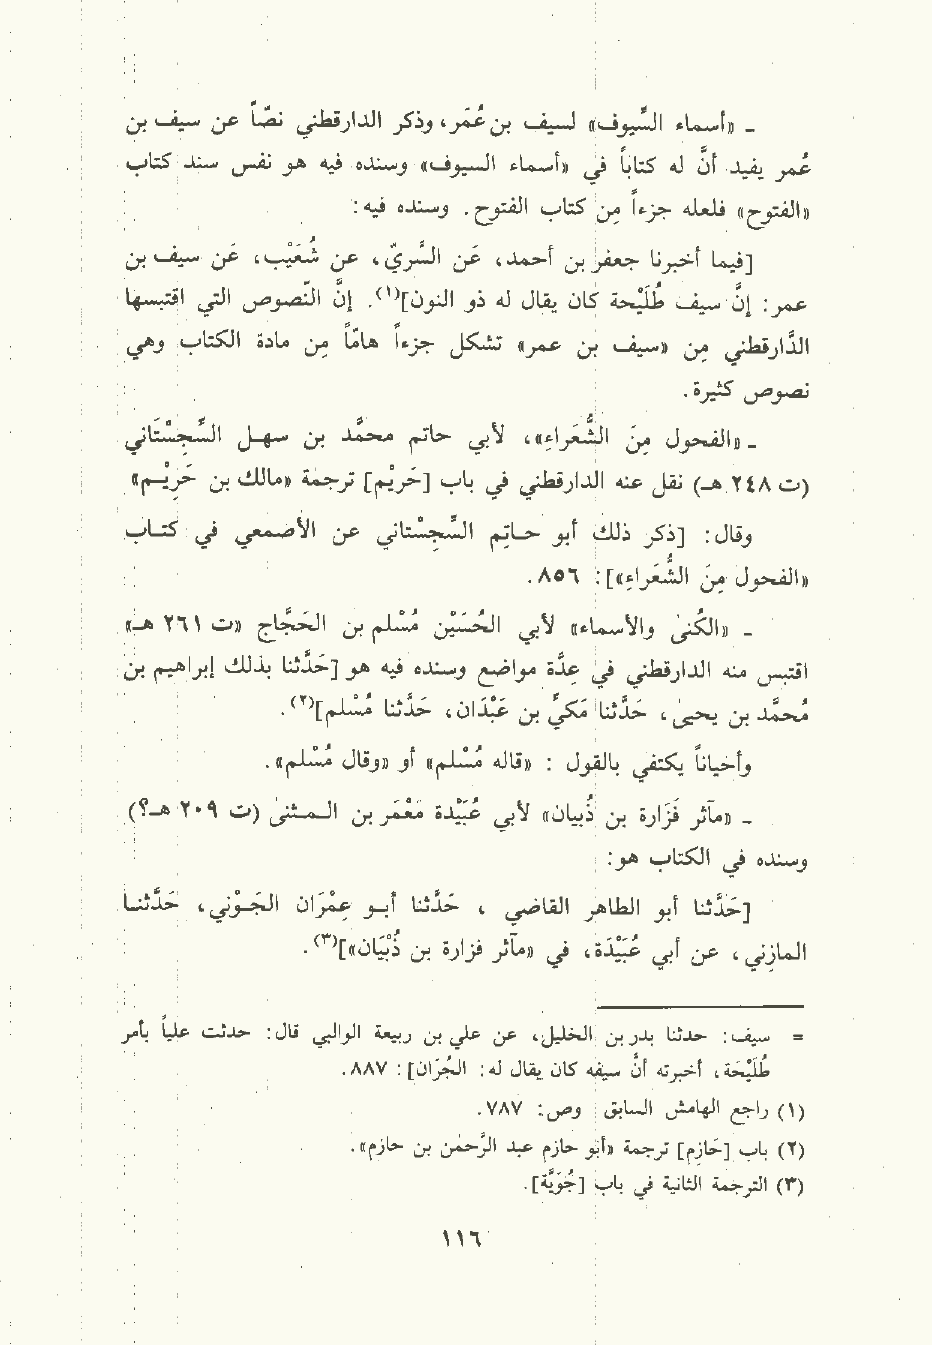 ـ «أسماء السِّيوف» لسيف بن عُمَر، وذكر الدارقطني نصّاً عن سيف بن
عُمر يفيد أنَّ له كتاباً في «أسماء السيوف» وسنده فيه هو نفس سند كتاب
«الفتوح» فلعله جزءاً مِن كتاب الفتوح. وسنده فيه:
[فيما أخبرنا جعفر بن أحمد، عَن السَّرِيّ، عن شُعَيْب، عَن سيف بن
عمر: إنَّ سيف طُلَيْحة كان يقال له ذو النون](١). إنَّ النّصوص التي اقتبسها
الدَّارقطني مِن «سيف بن عمر» تشكل جزءاً هامّاً مِن مادة الكتاب وهي
نصوص كثيرة.
ـ «الفحول مِنَ الشُّعَراءِ»، لأبي حاتم محمَّد بن سهل السِّجِسْتَاني
(ت ٢٤٨ هـ) نقل عنه الدارقطني في باب [حَرِيْم] ترجمة «مالك بن حَرِيْم»
وقال: [ذكر ذلك أبو حاتِم السِّجِسْتاني عن الأصمعي في كتاب
«الفحول مِنَ الشُّعَراءِ»]: ٨٥٦.
ـ «الكُنىٰ والأسماء» لأبي الحُسَيْن مُسْلم بن الحَجَّاج «ت ٢٦١ هـ»
اقتبس منه الدارقطني في عِدَّة مواضع وسنده فيه هو [حَدَّثنا بذلك إبراهيم بن
مُحمَّد بن يحيىٰ، حَدَّثنا مَكيِّ بن عَبْدَان، حَدَّثنا مُسْلم](٢).
وأحياناً يكتفي بالقول: «قاله مُسْلم» أو «وقال مُسْلم».
ـ «مآثر فَزَارة بن ذُبيان» لأبي عُبَيْدة مَعْمَر بن المثنىٰ (ت ٢٠٩ هـ؟)
وسنده في الكتاب هو:
[حَدَّثنا أبو الطاهر القاضي، حَدَّثنا أبو عِمْرَان الجَوْني، حَدَّثنا
المازِني، عن أبي عُبَيْدَة، في «مآثر فزارة بن ذُبْيَان»](٣).
= سيف: حدثنا بدر بن الخليل، عن علي بن ربيعة الوالبي قال: حدثت علياً بأمر
طُلَيْحَة، أخبرته أنَّ سيفه كان يقال له: الجُرَان]: ٨٨٧.
(١) راجع الهامش السابق وص: ٧٨٧.
(٢) باب [حَازِم] ترجمة «أبو حازم عبد الرَّحمن بن حازم».
(٣) الترجمة الثانية في باب [جُوَيَّة].
١١٦